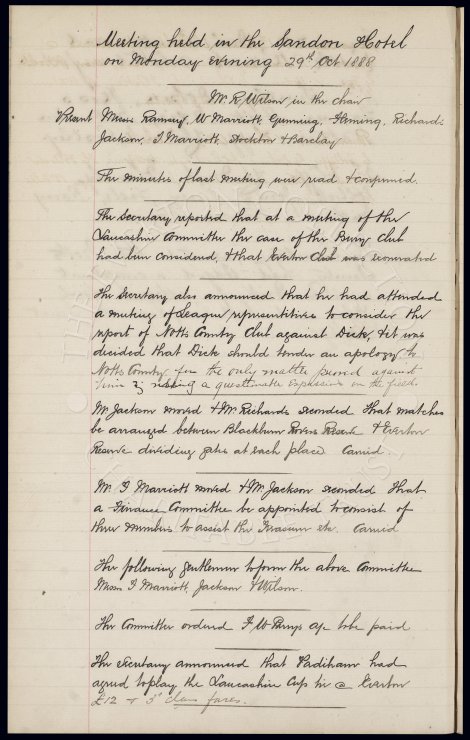 Meeting held in the Sandon Hotel
on Monday evening 29th Oct 1888
Mr R. Wilson in the chair
Present Messrs Ramsey, W Marriott, Gunning, Fleming, Richards,
Jackson, T Marriott, Stockton & Barclay
The minutes of last meeting were read & confirmed.
The Secretary reported that at a meeting of the
Lancashire Committee the case of the Bury Club
had been considered, & that Everton Club was exonerated
The Secretary also announced that he had attended
a meeting of League representitives to consider the
report of Notts County Club against Dick, & it was
decided that Dick should tender an apology to
Notts County for the only matter proved against
him by making a questionable expression on the field.
Mr Jackson moved & Mr Richards seconded that matches
be arranged between Blackburn Rovers Reserve & Everton
Reserve dividing gates at each place Carried.
Mr T Marriott moved & Mr Jackson seconded that
a Finance Committee be appointed to consist of
three members to assist the Treasurer etc. Carried
The following gentlemen to form the above Committee
Messrs T Marriott, Jackson & Wilson.
The Committee ordered F W Parrys a/c to be paid
The Secretary announced that Padiham had
agreed to play the Lancashire Cup tie @ Everton
£12 & 3rd class fares.